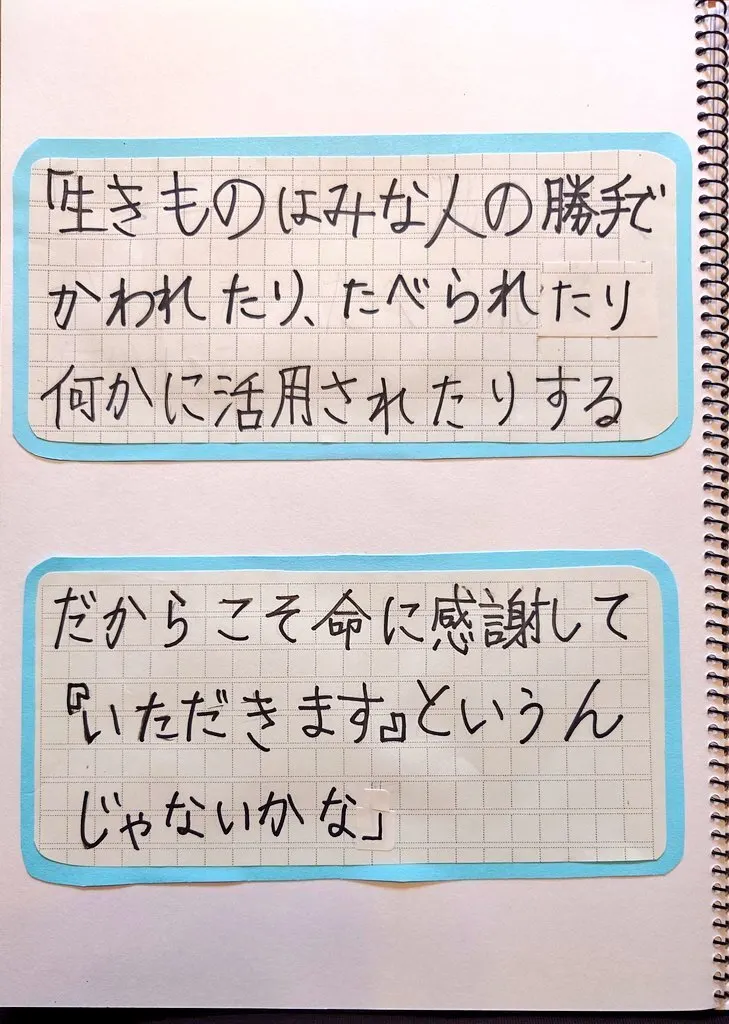 「生きものはみな人の勝手で
かわれたり、たべられたり
何かに活用されたりする
だからこそ命に感謝して
『いただきます』というん
じゃないかな」